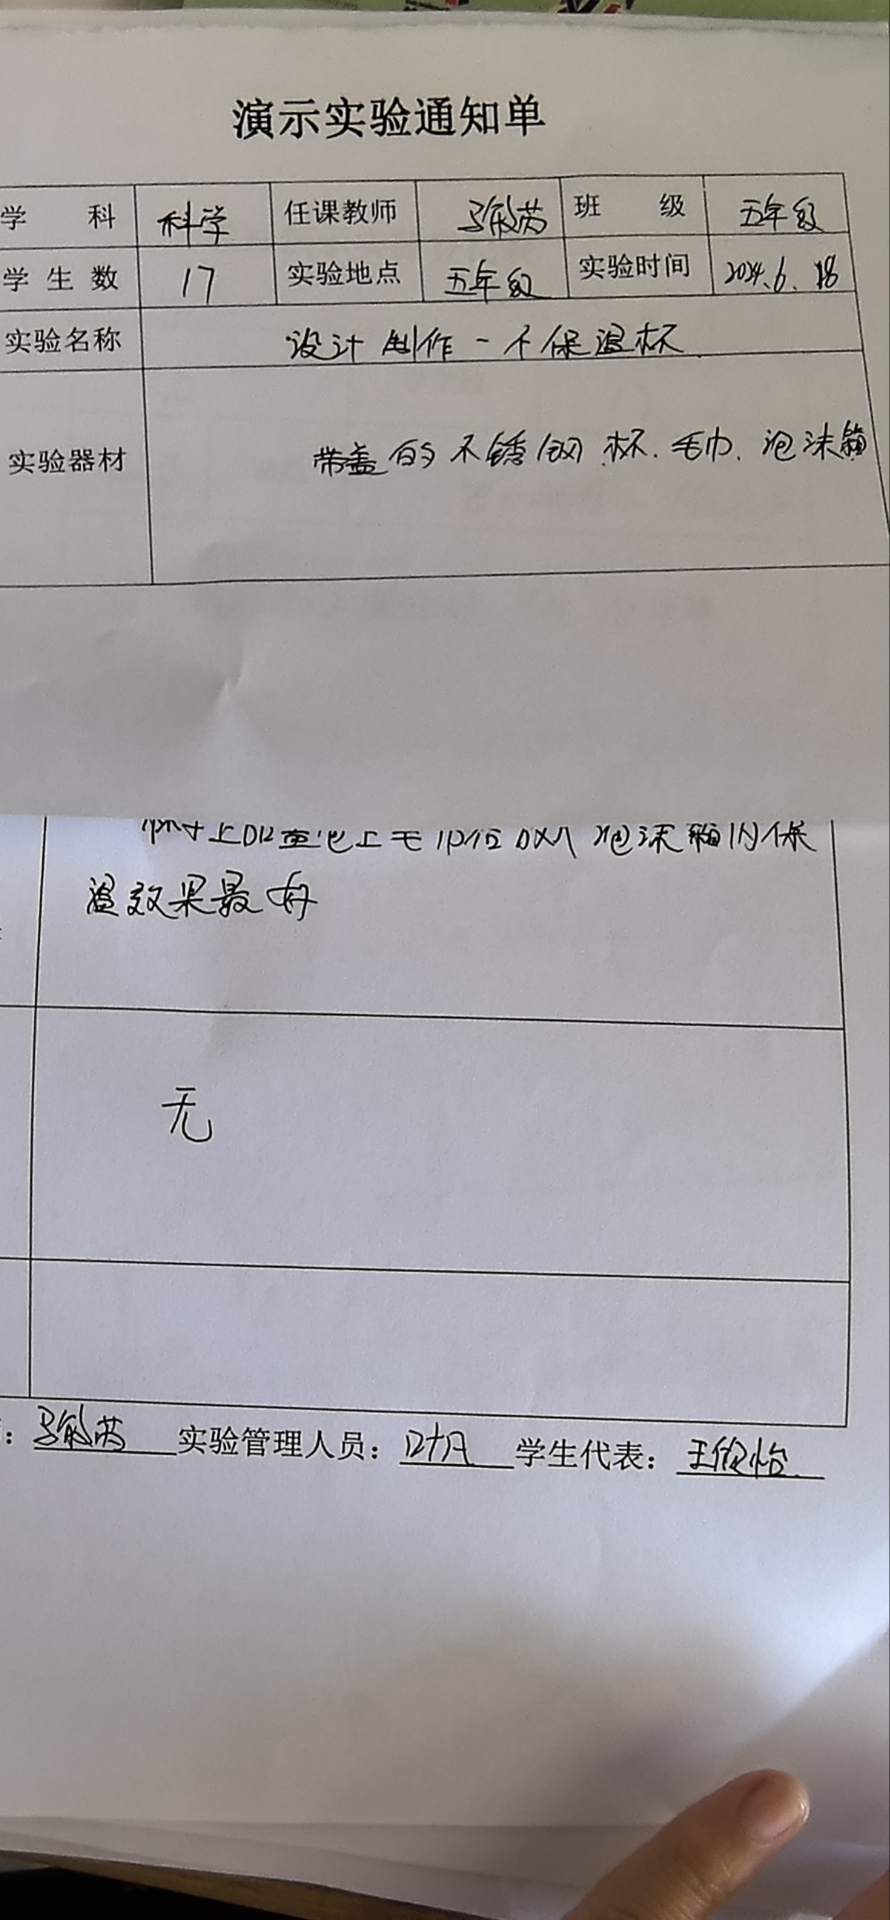 演示实验通知单
学 科 科学 任课教师 马敏芮 班 级 五年级
学生数 17 实验地点 五年级 实验时间 2024.6.18
实验名称 设计制作一个保温杯
实验器材 带盖的不锈钢杯.毛巾.泡沫箱
泡沫箱内保
温效果最好
无
: 实验管理人员: 学生代表: